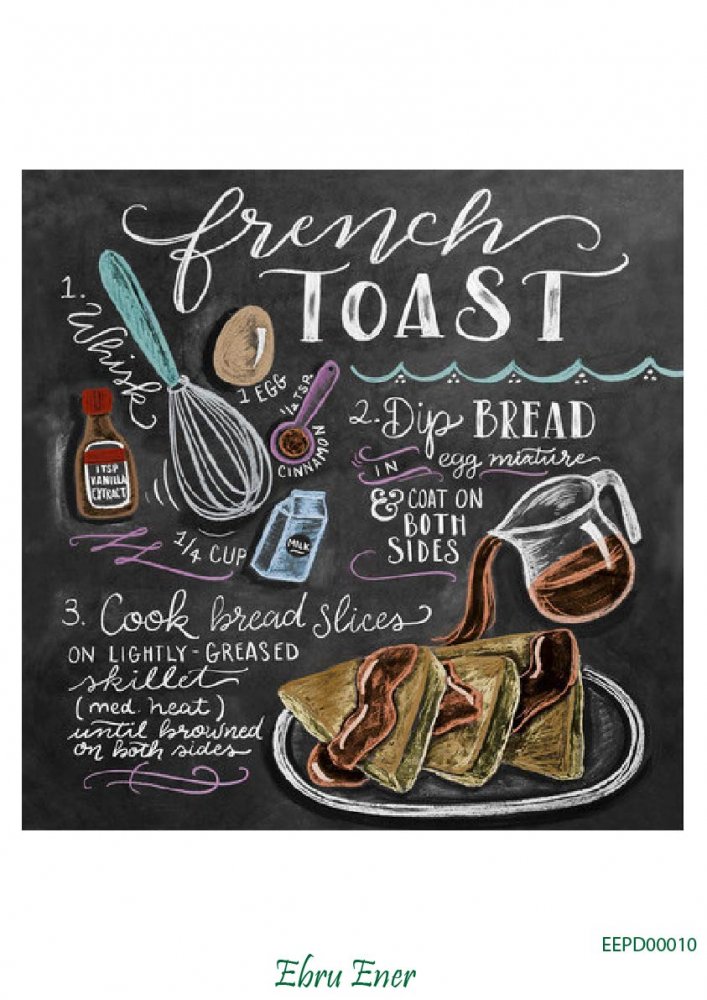 french
TOAST
1. Whisk
1 EGG
1/2 TSP.
CINNAMON
1 TSP
VANILLA
EXTRACT
1/4 CUP
MILK
2. Dip BREAD
IN egg mixture
& COAT ON
BOTH
SIDES
3. Cook bread slices
ON LIGHTLY-GREASED
skillet
(med. heat)
until browned
on both sides
EEPD00010
Ebru Ener